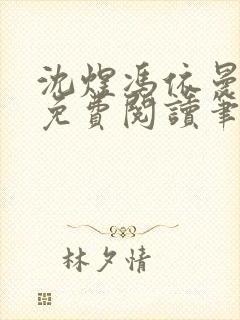 沈煜馮依晨
免費閱讀筆
林夕情